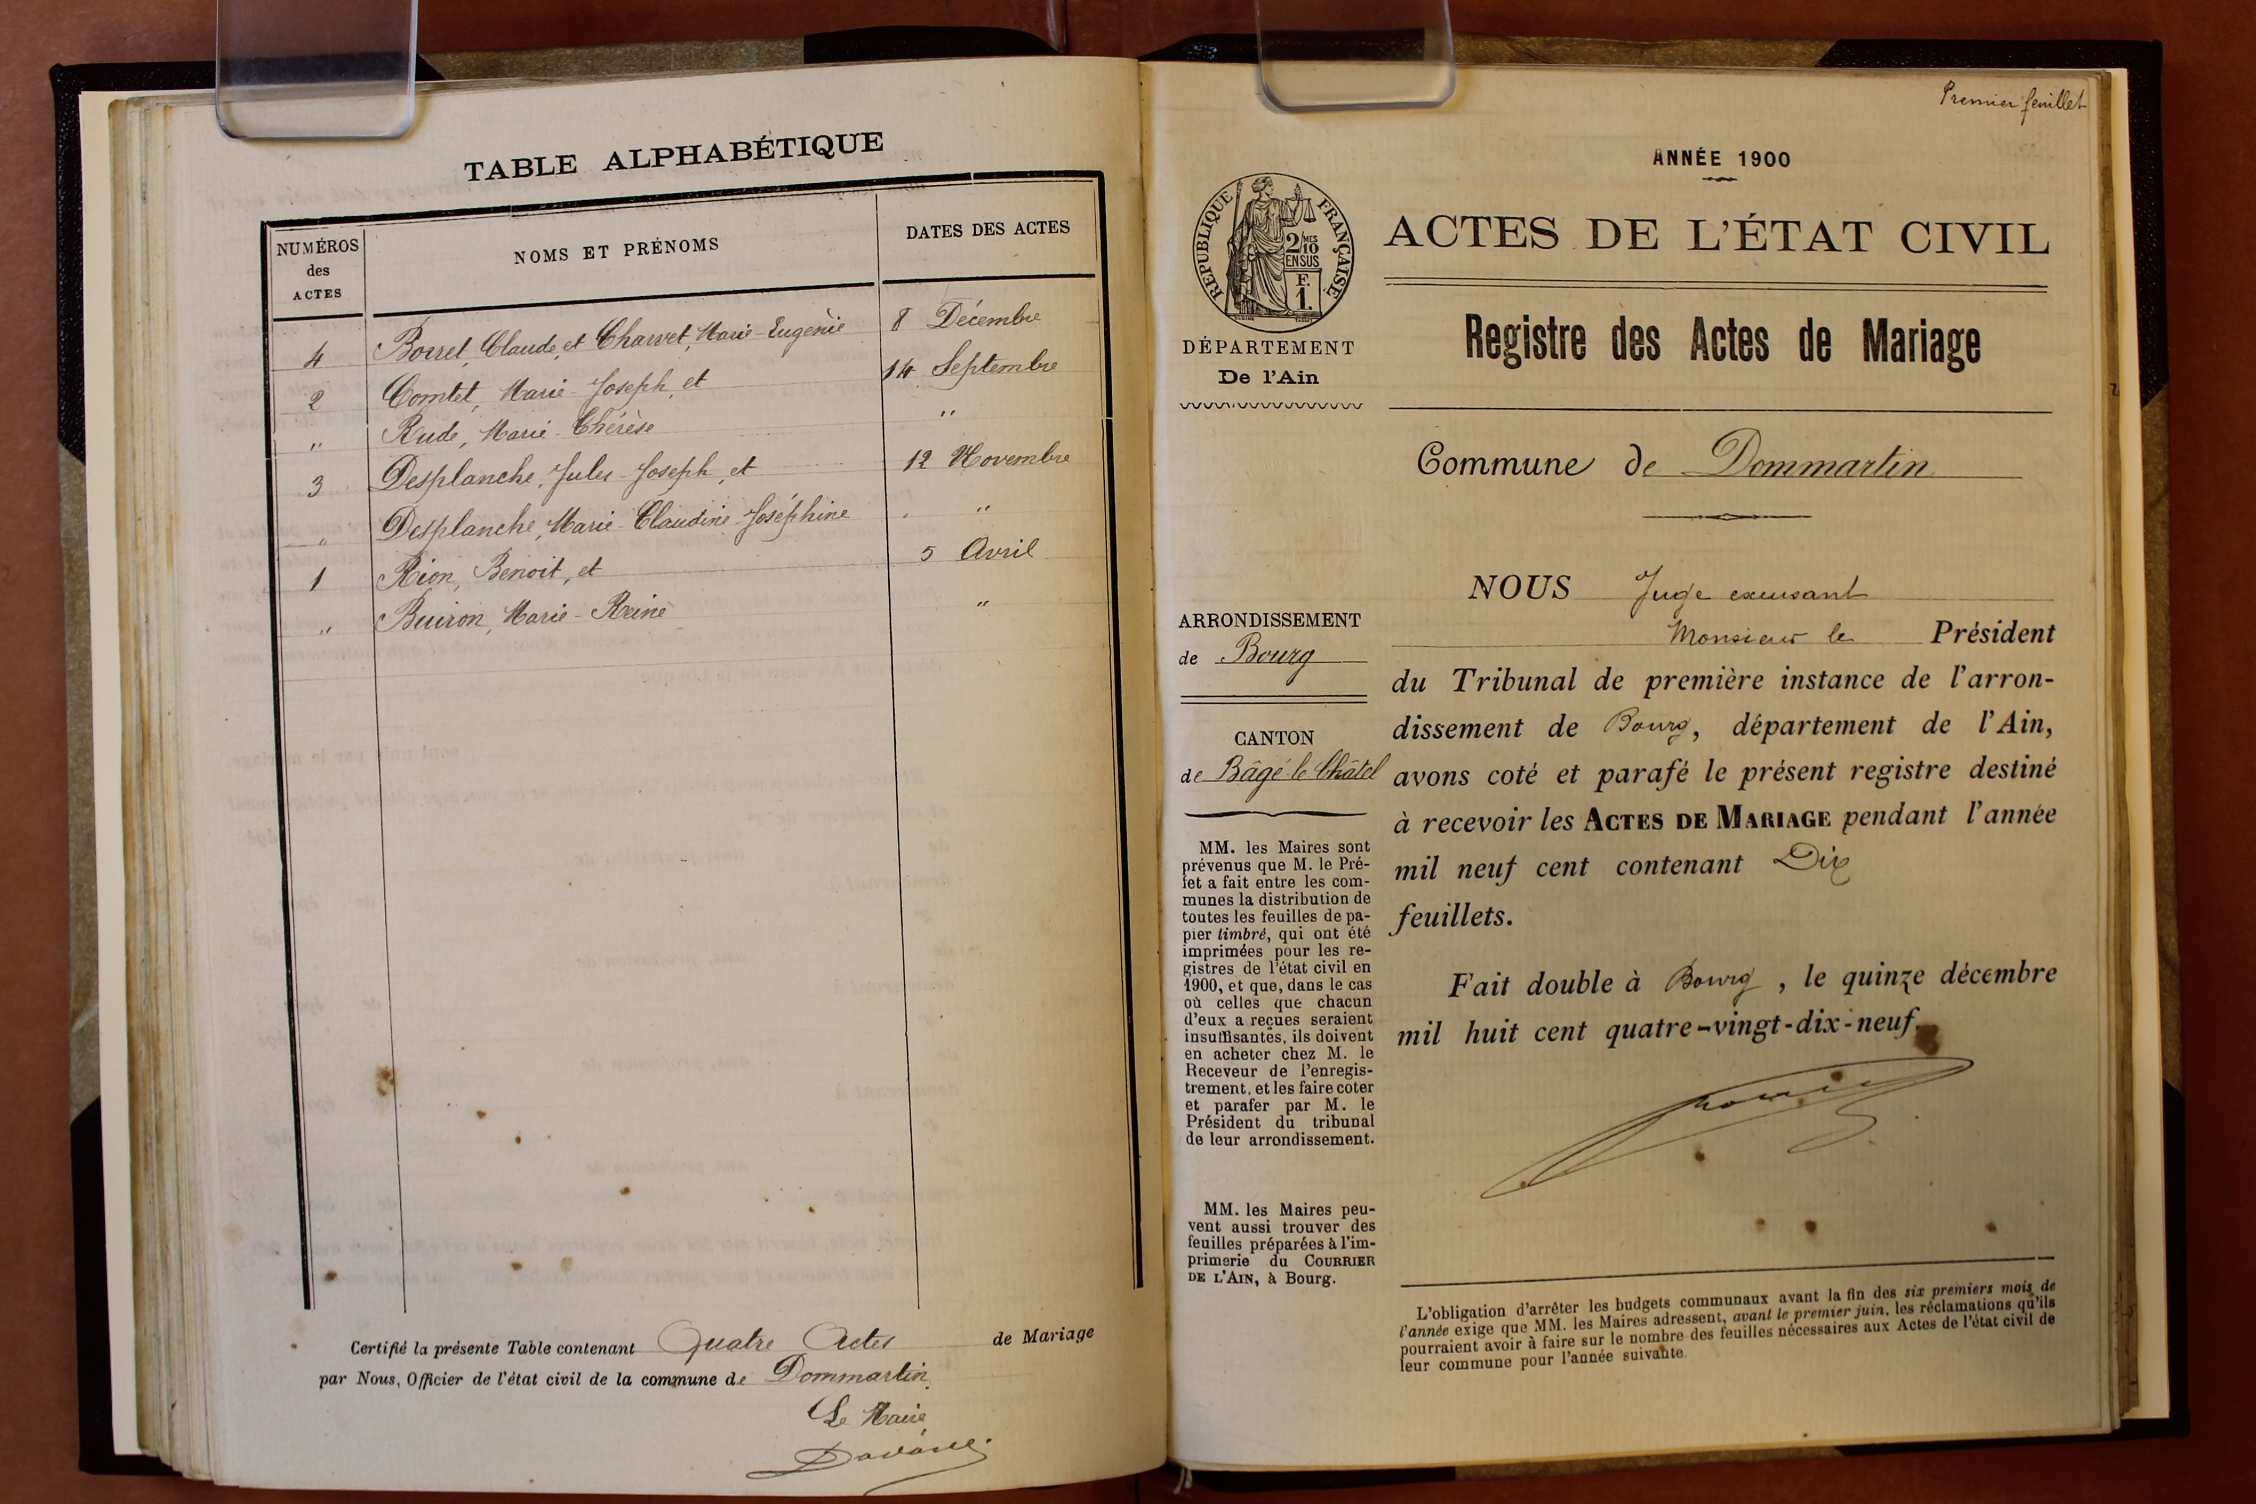 TABLE ALPHABÉTIQUE
NUMÉROS
des
ACTES
NOMS ET PRÉNOMS
DATES DES ACTES
4 Borrel, Claude, et Charvet, Marie-Eugènie 8 Décembre
2 Comtet, Marie-Joseph, et 14 Septembre
" Rude, Marie-Thérèse "
3 Desplanche, Jules-Joseph, et 12 Novembre
" Desplanche, Marie-Claudine-Joséphine "
1 Rion, Benoit, et 5 Avril
" Buiron, Marie-Reine "
Certifié la présente Table contenant Quatre Actes de Mariage
par Nous, Officier de l'état civil de la commune de Dommartin.
Le Maire
Premier feuillet
ANNÉE 1900
RÉPUBLIQUE FRANÇAISE
2/10 MES
EN SUS
F.
1.
ACTES DE L'ÉTAT CIVIL
Registre des Actes de Mariage
DÉPARTEMENT
De l'Ain
Commune de Dommartin
ARRONDISSEMENT
de Bourg
CANTON
de Bâgé-le-Châtel
MM. les Maires sont
prévenus que M. le Pré-
fet a fait entre les com-
munes la distribution de
toutes les feuilles de pa-
pier timbré, qui ont été
imprimées pour les re-
gistres de l'état civil en
1900, et que, dans le cas
où celles que chacun
d'eux a reçues seraient
insuffisantes, ils doivent
en acheter chez M. le
Receveur de l'enregis-
trement, et les faire coter
et parafer par M. le
Président du tribunal
de leur arrondissement.
MM. les Maires peu-
vent aussi trouver des
feuilles préparées à l'im-
primerie du COURRIER
DE L'AIN, à Bourg.
NOUS Juge excusant
Monsieur le Président
du Tribunal de première instance de l'arron-
dissement de Bourg, département de l'Ain,
avons coté et parafé le présent registre destiné
à recevoir les ACTES DE MARIAGE pendant l'année
mil neuf cent contenant Dix
feuillets.
Fait double à Bourg, le quinze décembre
mil huit cent quatre-vingt-dix-neuf.
L'obligation d'arrêter les budgets communaux avant la fin des six premiers mois de
l'année exige que MM. les Maires adressent, avant le premier juin, les réclamations qu'ils
pourraient avoir à faire sur le nombre des feuilles nécessaires aux Actes de l'état civil de
leur commune pour l'année suivante.